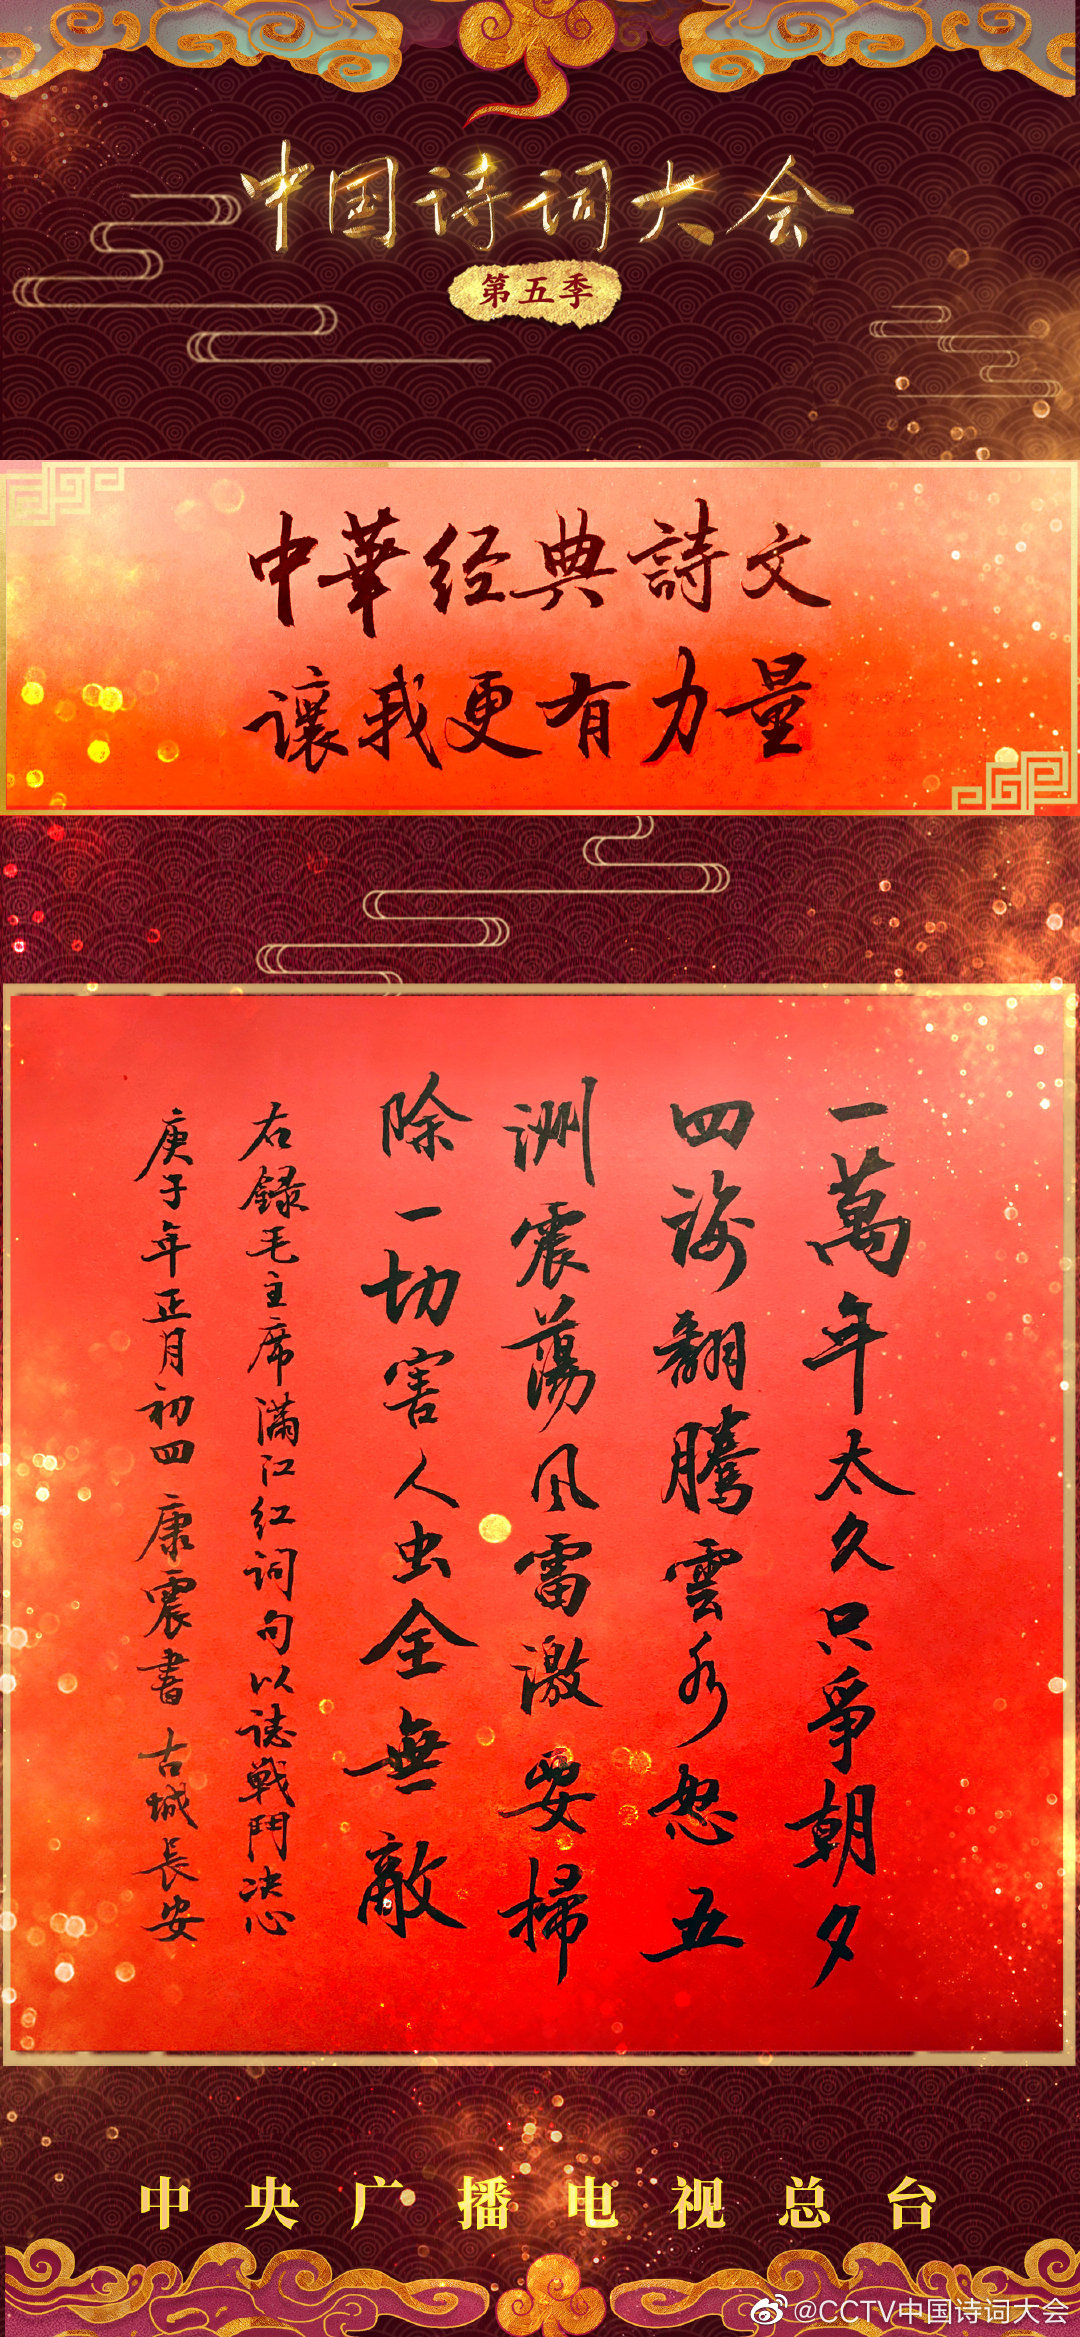 中国诗词大会
第五季
中華经典詩文
讓我更有力量
一萬年太久只爭朝夕
四海翻騰雲水怒五
洲震蕩风雷激要掃
除一切害人虫全無敵
右録毛主席满江红词句以誌戰鬥决心
庚子年正月初四 康震書 古城長安
中央广播电视总台
@CCTV中国诗词大会